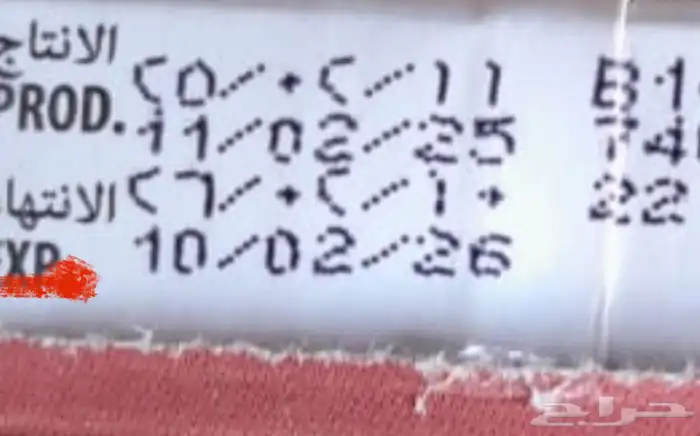 الانتاج ٢٥/٠٢/١١ B1
PROD. 11/02/25 74
الانتها ٢٦/٠٢/١٠ 22
EXP 10/02/26
حراج